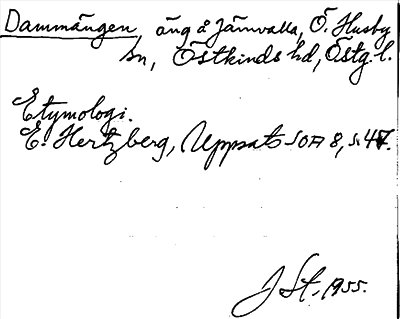 Dammängen, äng å Jämvalla, Ö. Husby
sn, Östkinds hd, Östg. l.
Etymologi.
E. Hertzberg, Uppsats SOÄ 8, s. 47.
J St. 1955.